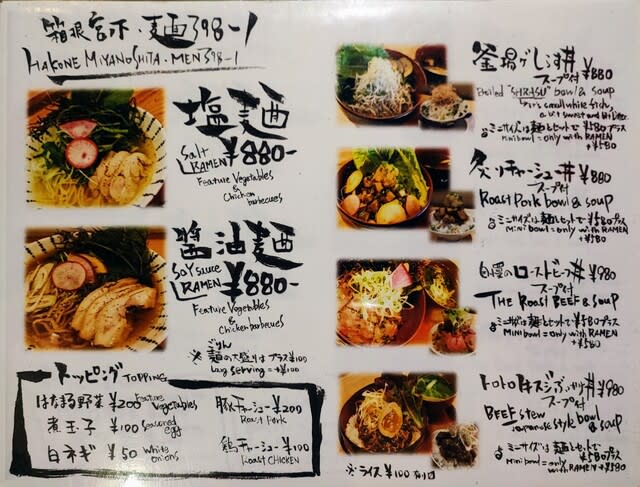 箱根宮ノ下・麺398-1
HAKONE MIYANOSHITA・MEN398-1
塩麺
Salt
RAMEN ¥880-
Feature Vegetables
&
Chicken
barbecues
醤油麺
SOY Sauce
RAMEN ¥880-
Feature Vegetables
& Chicken barbecues
※麺の大盛りはプラス¥100
Larg serving = +¥100
トッピング TOPPING
はなまる野菜 ¥200 Feature Vegetables
煮玉子 ¥100 Seasoned egg
白ネギ ¥50 White onions
豚チャーシュー ¥200
Roast Pork
鶏チャーシュー ¥100
Roast CHICKEN
釜揚げしらす丼 ¥880
スープ付
Boiled "SHIRASU" bowl & soup
ミニサイズは麺とセットで¥580プラス
mini bowl = only with RAMEN
+¥580
炙りチャーシュー丼 ¥880
スープ付
Roast Pork bowl & soup
ミニサイズは麺とセットで¥580プラス
mini bowl = only with RAMEN
+¥580
自慢のローストビーフ丼 ¥980
スープ付
THE Roast BEEF & Soup
ミニサイズは麺とセットで¥580プラス
mini bowl = only with RAMEN
+¥580
トロトロ牛スジぶっかけ丼 ¥980
スープ付
BEEF stew
Japanese style bowl
& soup
ミニサイズは麺とセットで
mini bowl = only ¥580プラス
with RAMEN +¥580
※ライス ¥100